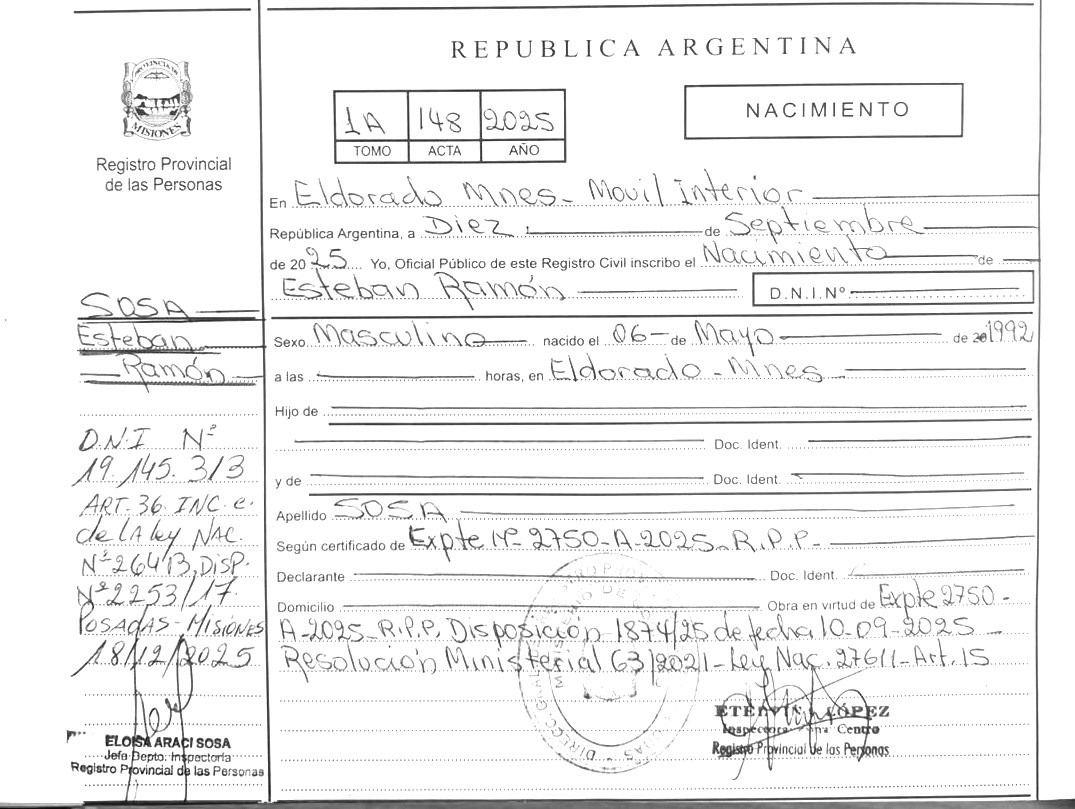 REPUBLICA ARGENTINA
PROVINCIA DE
MISIONES
Registro Provincial
de las Personas
1A 148 2025
TOMO ACTA AÑO
NACIMIENTO
En Eldorado Mnes- Movil Interior
República Argentina, a Diez de Septiembre
de 2025 Yo, Oficial Público de este Registro Civil inscribo el Nacimiento de
Esteban Ramón D.N.I.Nº
Sexo Masculino nacido el 06- de Mayo de 1992
a las horas, en Eldorado - Mnes
Hijo de
Doc. Ident.
y de Doc. Ident.
Apellido SOSA
Según certificado de Expte Nº 2750-A-2025- R.P.P-
Declarante Doc. Ident.
Domicilio Obra en virtud de Expte 2750-
A-2025-R.P.P. Disposición 1874/25 de fecha 10-09-2025
Resolución Ministerial 63/2021-Ley Nac. 27611-Art. 15
ETELVINA LÓPEZ
Inspectora Zona Centro
Registro Provincial de las Personas
SOSA
Esteban
Ramón
D.N.I Nº
19.145.313
ART-36 INC e.
de LA ley NAC.
Nº26413, DISP.
Nº2253/17
POSADAS-MISIONES
18/12/2025
ELOISA ARACI SOSA
Jefa Depto. Inspectoría
Registro Provincial de las Personas